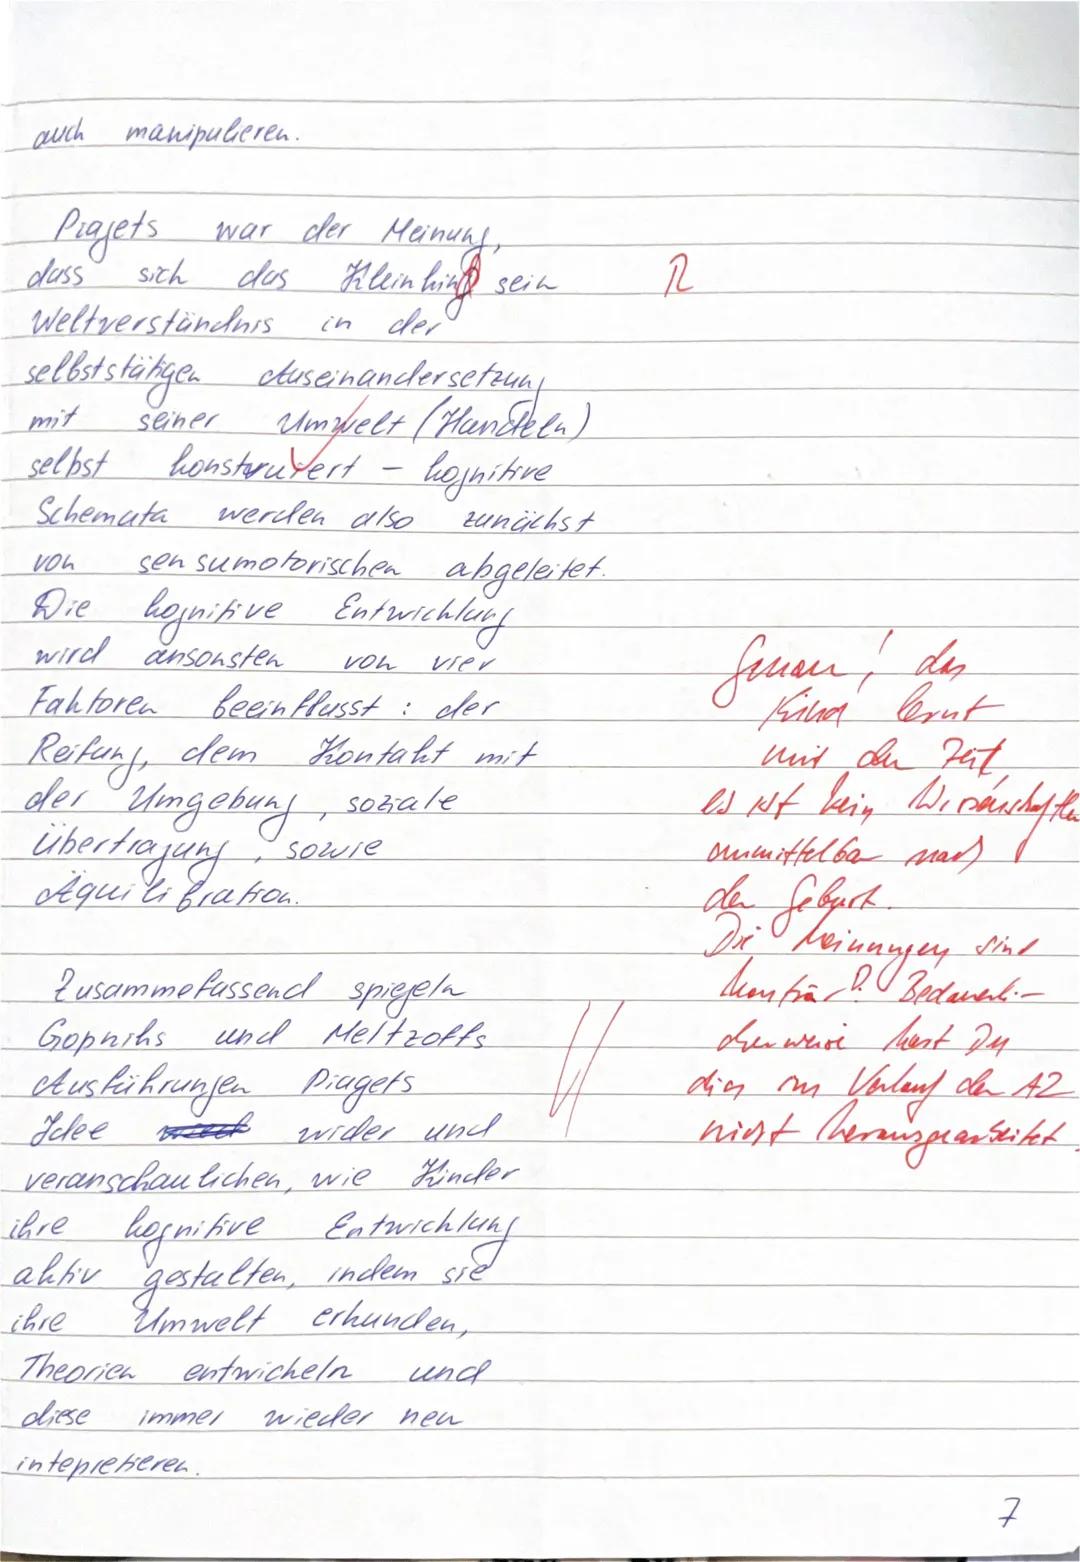 auch manipulieren.
Piagets war der Meinung,
dass sich das Kleinkind sein
R
Weltverständnis in der
selbststätigen Auseinandersetzung
mit seiner Umwelt (Handeln)
selbst konstruiert – kognitive
Schemata werden also zunächst
von sensumotorischen abgeleitet.
Die kognitive Entwicklung
wird ansonsten von vier
Faktoren beeinflusst : der
Reifung, dem Kontakt mit
der Umgebung, soziale
Übertragung, sowie
Äquilibration.
Zusammefassend spiegeln
Gopniks und Meltzoffs
Ausführungen Piagets
Idee wider und
veranschaulichen, wie Kinder
ihre kognitive Entwicklung
aktiv gestalten, indem sie
ihre Umwelt erkunden,
Theorien entwickeln und
diese immer wieder neu
intepretieren.
Genau! das
Kind lernt
mit der Zeit,
es ist kein Wissenschaftler
unmittelbar nach
der Geburt.
Die Meinungen sind
konträr! Bedauerli-
cherweise hast Du
dies im Verlauf der A2
nicht herausgearbeitet.
7